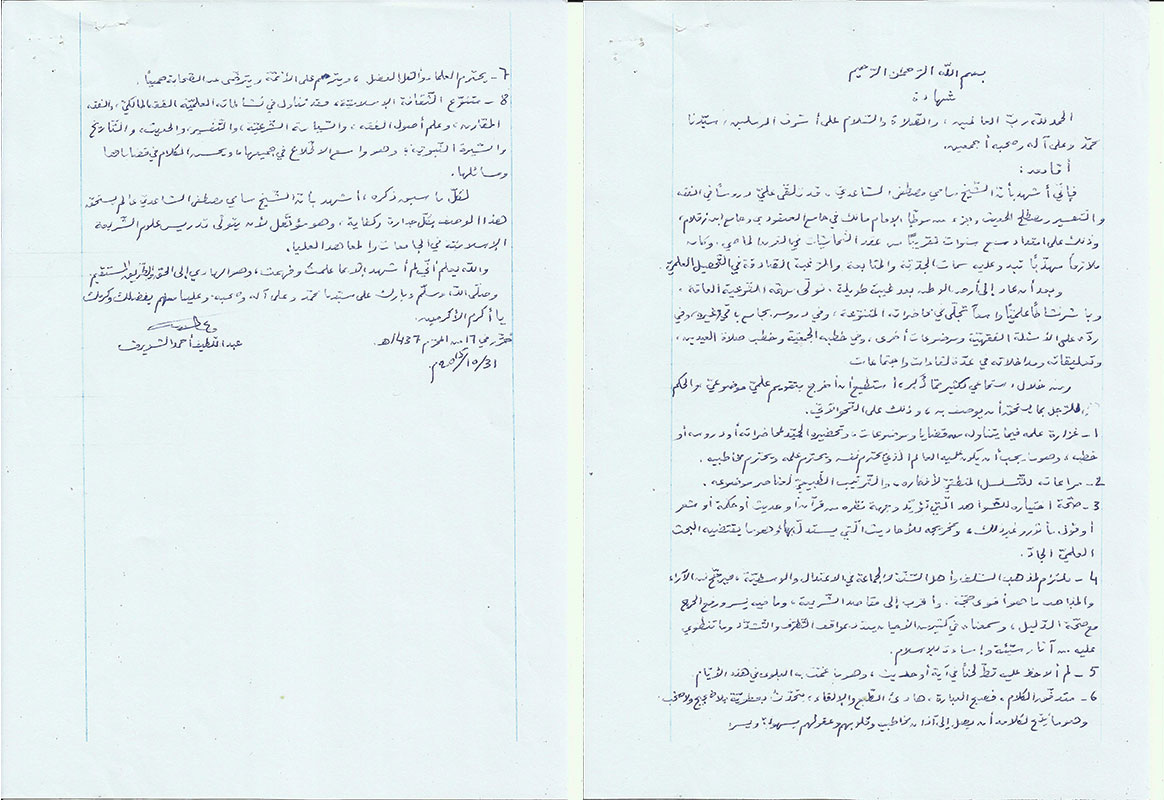 بسم الله الرحمن الرحيم
شهادة
الحمد لله ربّ العالمين، والصّلاة والسّلام على أشرف المرسلين، سيّدنا
محمّد وعلى آله وصحبه أجمعين.
أمّا بعد:
فإنّي أشهد بأنّ الشّيخ سامي مصطفى السّاعدي، قد تلقّى عليّ دروسًا في الفقه
والتفسير ومصطلح الحديث وجزء من موطّإ الإمام مالك في جامع الصقور بي وجامع ابن زقلام،
وذلك على امتداد سبع سنوات تقريبًا من عقد الثّمانينيات في القرن الماضي. وكان
ملازمًا مهذّبًا تبدو عليه سمات الجدّيّة والمتابعة والرّغبة الصّادقة في التّحصيل العلميّ.
وبعد أن عاد إلى أرض الوطن بعد غيبة طويلة، تولّى مهمّة التّوعية العامّة،
وباشر نشاطًا علميًّا واسعًا تجلّى في محاضراته المتنوّعة، وفي دروسه بجامع باقي وغيره، وفي
ردّه على الأسئلة الفقهيّة وموضوعات أخرى، وفي خطبه الجمعيّة وخطب صلاة العيدين،
وتعليقاته ومداخلاته في عدّة لقاءات واجتماعات
ومن خلال استماعي لكثير ممّا ذُكر، أستطيع أن أخرج بتقويم علميّ موضوعيّ، والحكم
للرّجل بما يستحقّ أن يوصف به، وذلك على النّحو الآتي.
1- غزارة علمه فيما يتناوله من قضايا وموضوعات، وتحضيره الجيّد لمحاضراته أو دروسه أو
خطبه، وهو ما يجب أن يكون عليه العالم الذي يحترم نفسه ويحترم علمه ويحترم مخاطبيه.
2- مراعاته للتّسلسل المنطقيّ لأفكاره، والتّرتيب الطّبيعيّ لعناصر موضوعه.
3- صحّة اختياره للشّواهد الّتي تؤيّد وجهة نظره من قرآن أو حديث أو حكمة أو شعر
أو قول مأثور وغير ذلك، وتخريجه للأحاديث الّتي يستدلّ بها، وهو ما يقتضيه البحث
العلميّ الجادّ.
4- يلتزم لمذهب السّلف وأهل السّنّة والجماعة في الاعتدال والوسطيّة، فيرجّح من الآراء
والمذاهب ما هو أقوى حجّة، وأقرب إلى مقاصد الشّريعة، وما فيه يُسر ورفع الحرج
مع صحّة الدّليل، وسمعناه في كثير من الأحيان يندّد بمواقف التّطرّف والتّشدّد وما تنطوي
عليه من آثار سيّئة وإساءة للإسلام.
5- لم ألاحظ عليه قطّ لحنًا في آية أو حديث، وهو ما عمّت به البلوى في هذه الأيّام
6- متدفّق الكلام، فصيح العبارة، هادئ الطّبع والإلقاء، يتحدّث بعفويّة بلا ضجيج ولا صخب،
وهو ما يتيح لكلامه أن يصل إلى آذان مخاطبيه وقلوبهم وعقولهم بسهولة ويسر.
7- يحترم العلماء وأهل الفضل، ويترحّم على الأئمّة ويترضّى عن الصّحابة جميعًا.
8- متنوّع الثّقافة الإسلاميّة، فقد تناول في نشاطاته العلميّة الفقه المالكيّ، والفقه
المقارن، وعلم أصول الفقه، والسّياسة الشّرعيّة، والتّفسير، والحديث، والتّاريخ
والسّيرة النّبويّة، وهو واسع الاطّلاع في جميعها، ويحسن الكلام في قضاياها
ومسائلها.
لكلّ ما سبق ذكره، أشهد بأنّ الشّيخ سامي مصطفى السّاعدي عالم يستحقّ
هذا الوصف بكلّ جدارة وكفاية، وهو مؤهّل لأن يتولّى تدريس علوم الشّريعة
الإسلاميّة في الجامعات والمعاهد العليا.
والله يعلم أنّي لم أشهد إلّا بما علمتُ وفهمت، وهو الهادي إلى الحقّ والطّريق المستقيم
وصلّى الله وسلّم وبارك على سيّدنا محمّد وعلى آله وصحبه، وعلينا معهم بفضلك وكرمك
يا أكرم الأكرمين.
حُرّر في 16 من المحرّم 1437هـ.
31/10/2015م
عبد اللّطيف أحمد الشّويرف